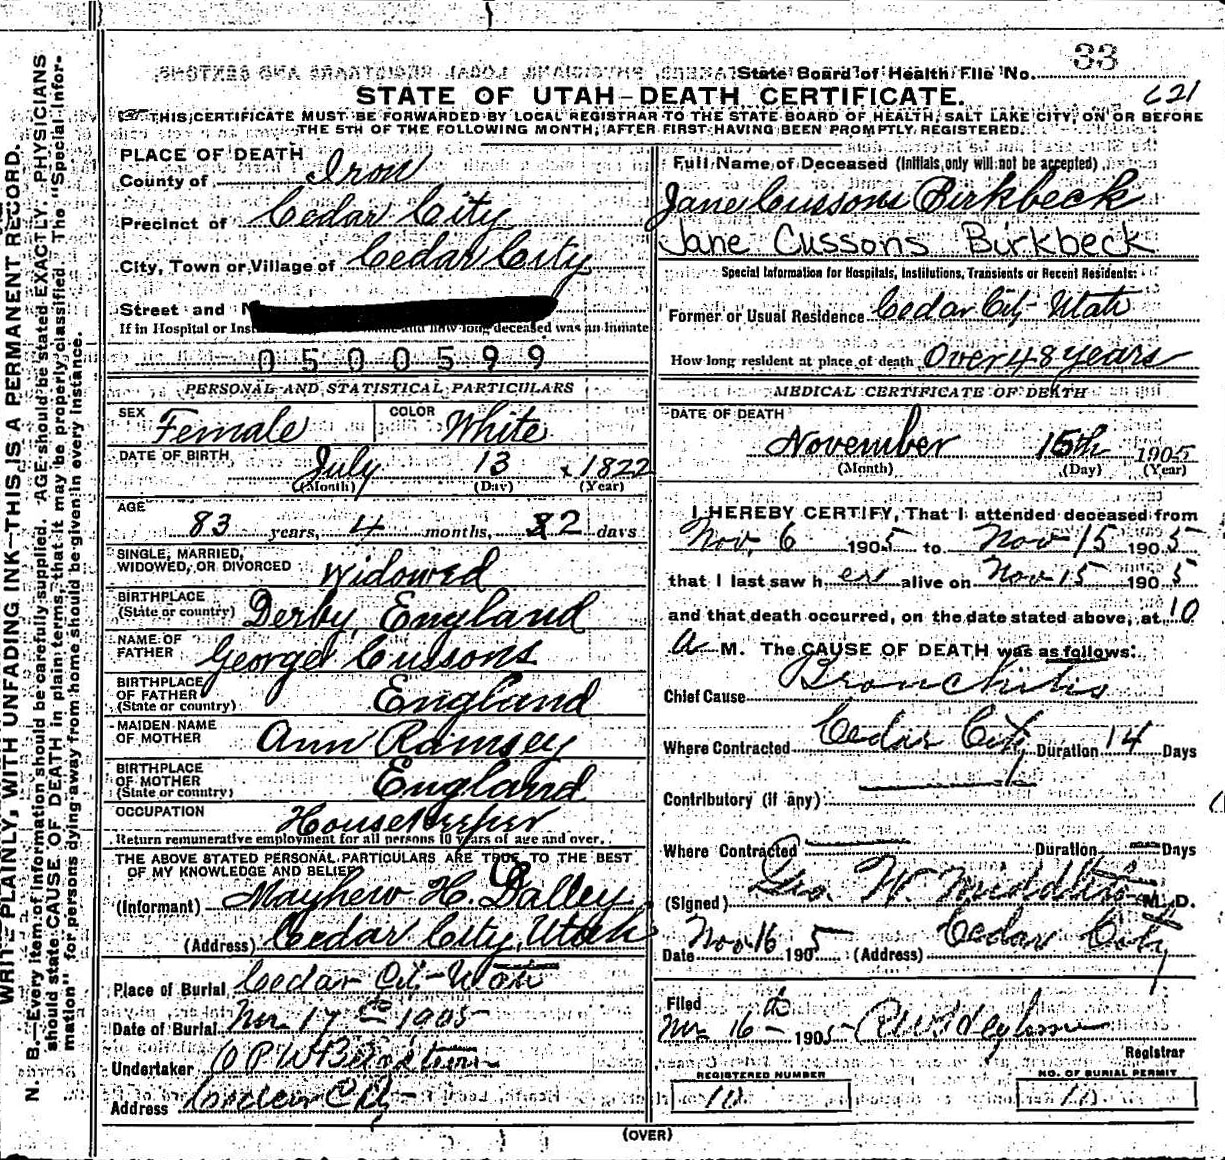 33
State Board of Health File No.
621
STATE OF UTAH-DEATH CERTIFICATE.
THIS CERTIFICATE MUST BE FORWARDED BY LOCAL REGISTRAR TO THE STATE BOARD OF HEALTH, SALT LAKE CITY, ON OR BEFORE
THE 5TH OF THE FOLLOWING MONTH, AFTER FIRST HAVING BEEN PROMPTLY REGISTERED.
WRITE PLAINLY, WITH UNFADING INK-THIS IS A PERMANENT RECORD.
N. B.-Every item of information should be carefully supplied. AGE should be stated EXACTLY. PHYSICIANS
should state CAUSE OF DEATH in plain terms, that it may be properly classified. The "Special Infor-
mation" for persons dying away from home should be given in every instance.
PLACE OF DEATH
County of Iron
Precinct of Cedar City
City, Town or Village of Cedar City
Street and
If in Hospital or and how long deceased was an inmate
0500599
PERSONAL AND STATISTICAL PARTICULARS
SEX Female COLOR White
DATE OF BIRTH July 13 1822
(Month) (Day) (Year)
AGE
83 years, 4 months, 2 days
SINGLE, MARRIED,
WIDOWED, OR DIVORCED Widowed
BIRTHPLACE
(State or country) Derby, England
NAME OF
FATHER George Cussons
BIRTHPLACE
OF FATHER
(State or country) England
MAIDEN NAME
OF MOTHER Ann Ramsey
BIRTHPLACE
OF MOTHER
(State or country) England
OCCUPATION Housekeeper
Return remunerative employment for all persons 10 years of age and over.
THE ABOVE STATED PERSONAL PARTICULARS ARE TRUE TO THE BEST
OF MY KNOWLEDGE AND BELIEF
(Informant) Mayhew H. Dalley
(Address) Cedar City, Utah
Place of Burial Cedar City Utah
Date of Burial Nov 17th 1905
Undertaker
Address Cedar City
Full Name of Deceased (Initials only will not be accepted)
Jane Cussons Birkbeck
Jane Cussons Birkbeck
Special Information for Hospitals, Institutions, Transients or Recent Residents:
Former or Usual Residence Cedar City Utah
How long resident at place of death Over 48 years
MEDICAL CERTIFICATE OF DEATH
DATE OF DEATH
November 15th 1905
(Month) (Day) (Year)
I HEREBY CERTIFY, That I attended deceased from
Nov. 6 1905 to Nov 15 1905
that I last saw her alive on Nov 15 1905
and that death occurred, on the date stated above, at 10
a M. The CAUSE OF DEATH was as follows:
Chief Cause Bronchitis
Where Contracted Cedar City Duration 14 Days
Contributory (if any)
Where Contracted Duration Days
(Signed) Geo. W. Middleton M.D.
Date Nov 16 1905 (Address) Cedar City
Filed
Nov 16th 1905
Registrar
REGISTERED NUMBER
10
NO. OF BURIAL PERMIT
10
(OVER)